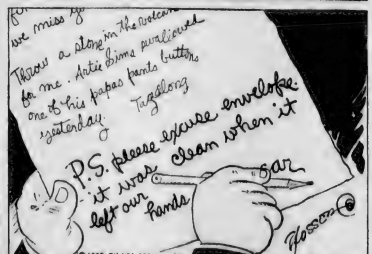 we miss you
Throw a stone in the volcano
for me. Artie Sims swallowed
one of his papas pants buttons
yesterday. Tagalong
P.S. please excuse envelope.
it was clean when it
left our hands